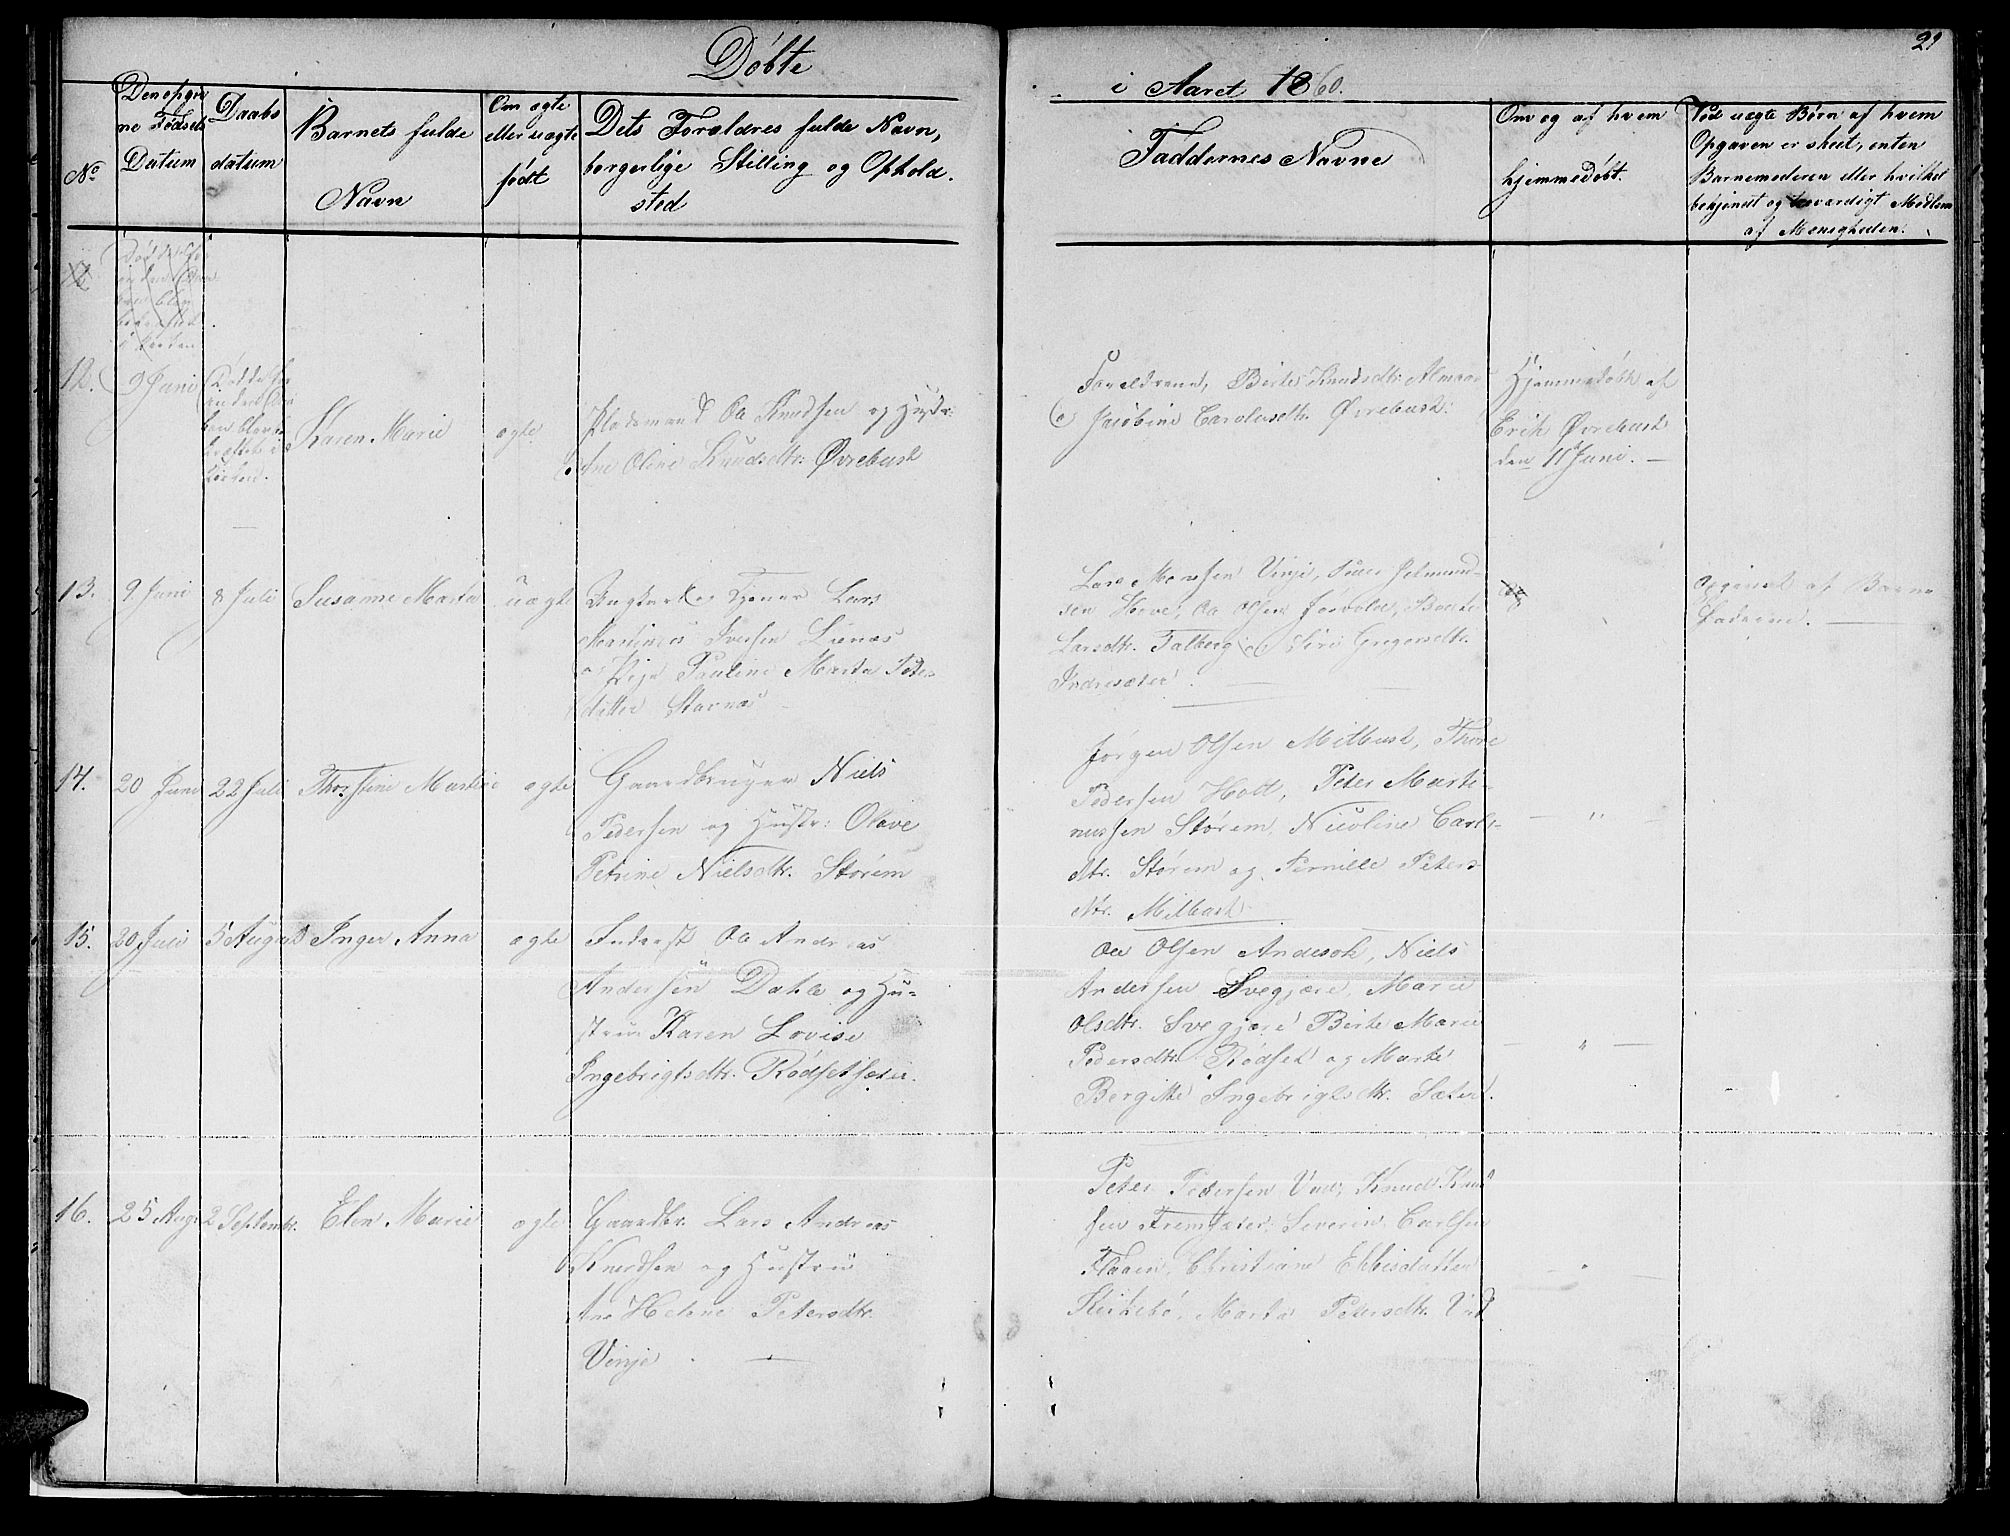 Döbte
i Aaret 1860.
21
No
Den opgivne Fødsels Datum
Daabs datum
Barnets fulde Navn
Om ægte eller uægte født
Dets Forældres fulde Navn, borgerlige Stilling og Opholdsted
Faddernes Navne
Om og af hvem hjemmedøbt.
Ved uægte Børn af hvem Opgaven er skeet, enten Barnemoderen eller hvilket bekjendt og troværdigt Medlem af Menigheden.
12.
9 Juni
Døde før
Karen Marie
ægte
Pladsmand Ole Knudsen og Hustr:
Ane Oline Knudsdtr. Øvrebust
Forældrene, Birte Knudsdtr.
Jacobine Øvrebust
Hjemmedøbt af
Erik Øvrebust
den 11 Juni.
13.
9 Juni
8 Juli
Susanne Marta
uægte
Ungkarl og Tjener Lars
Martinus Iversen
og Pige Pauline Marta Peters
datter
Lars Monsen Vinje,
sen Hove, Ole Olsen
Larsdtr. Talberg og Siri Gregersdtr.
Indresæter
Opgivet af Barne
faderen.
14.
20 Juni
22 Juli
Thorstine Martine
ægte
Gaardbruger Niels
Pedersen og Hustr: Olave
Petrine Nielsdtr. Størem
Jørgen Olsen Milbust, Thore
Pedersen Holt, Peter Marti-
nussen Størem, Nicoline Carls-
dtr. Størem og Pernille Peters
dtr. Milbust
— " —
15.
20 Juli
5 August
Inger Anna
ægte
Inderst Ole Andreas
Andersen Dahle og Hu-
stru Karen Lovise
Ingebrigtsdtr. Rødsetsæter.
Ole Olsen Andesok, Niels
Andersen Svegjære, Marie
Olsdtr. Svegjære Birte Marie
Pedersdtr. Rødset og Marte
Bergitte Ingebrigtsdtr. Sæter.
— " —
16.
25 Aug.
2 Septembr.
Elen Marie
ægte
Gaardbr. Lars Andreas
Knudsen og Hustru
Ane Helene Petersdtr.
Vinje
Peter Pedersen Vad, Knud Knud
sen Fremsæter, Severin Carlsen
Flaaen, Christiane
Kirkebø, Marta Petersdtr. Vad